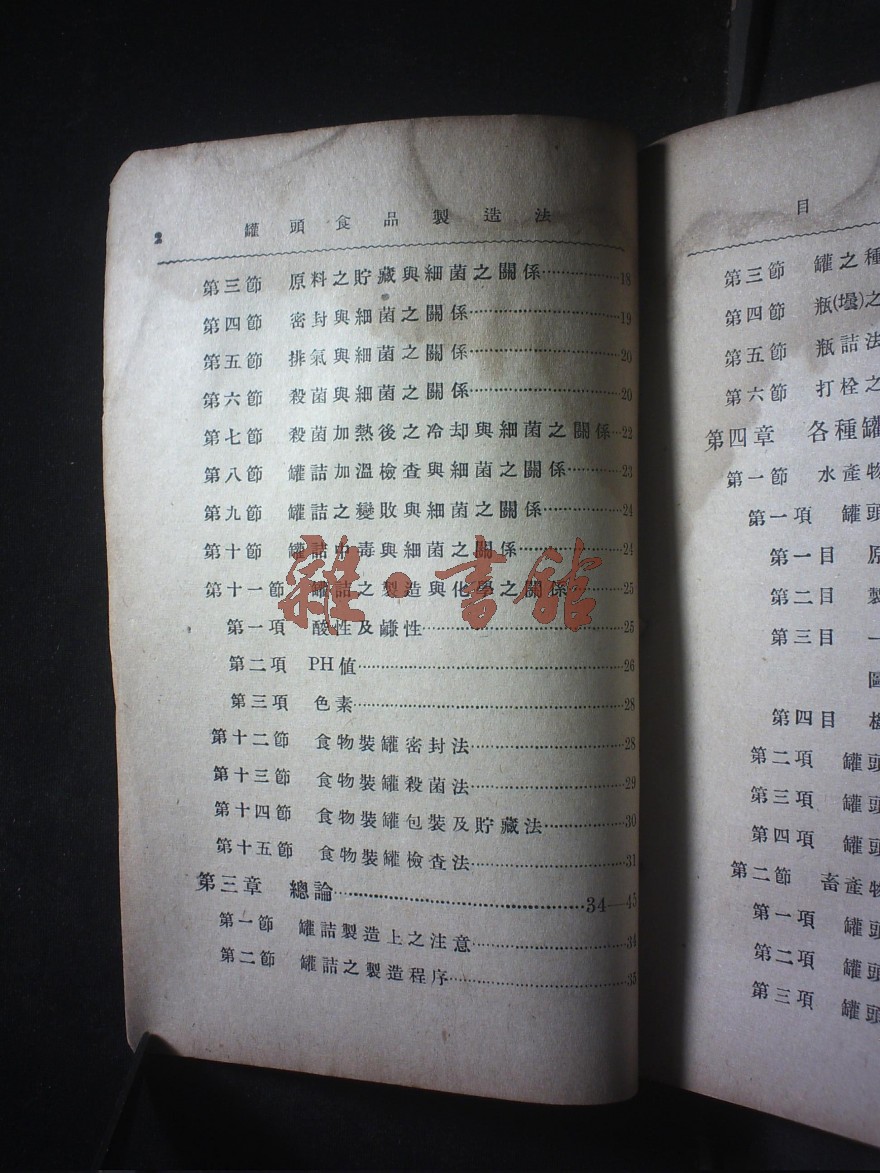 2 罐頭食品製造法
第三節 原料之貯藏與細菌之關係…………18
第四節 密封與細菌之關係…………19
第五節 排氣與細菌之關係…………20
第六節 殺菌與細菌之關係…………20
第七節 殺菌加熱後之冷却與細菌之關係…22
第八節 罐詰加溫檢查與細菌之關係…………23
第九節 罐詰之變敗與細菌之關係…………24
第十節 罐詰中毒與細菌之關係…………24
第十一節 罐詰之製造與化學之關係…………25
第一項 酸性及鹻性…………25
第二項 PH值…………26
第三項 色素…………28
第十二節 食物裝罐密封法…………28
第十三節 食物裝罐殺菌法…………29
第十四節 食物裝罐包裝及貯藏法…………30
第十五節 食物裝罐檢查法…………31
第三章 總論…………34—45
第一節 罐詰製造上之注意…………34
第二節 罐詰之製造程序…………35
雜·書館
目
第三節 罐之種
第四節 瓶(壜)之
第五節 瓶詰法
第六節 打栓之
第四章 各種罐
第一節 水產物
第一項 罐頭
第一目 原
第二目 製
第三目 一
圖
第四目
第二項 罐頭
第三項 罐頭
第四項 罐頭
第二節 畜產物
第一項 罐頭
第二項 罐頭
第三項 罐頭